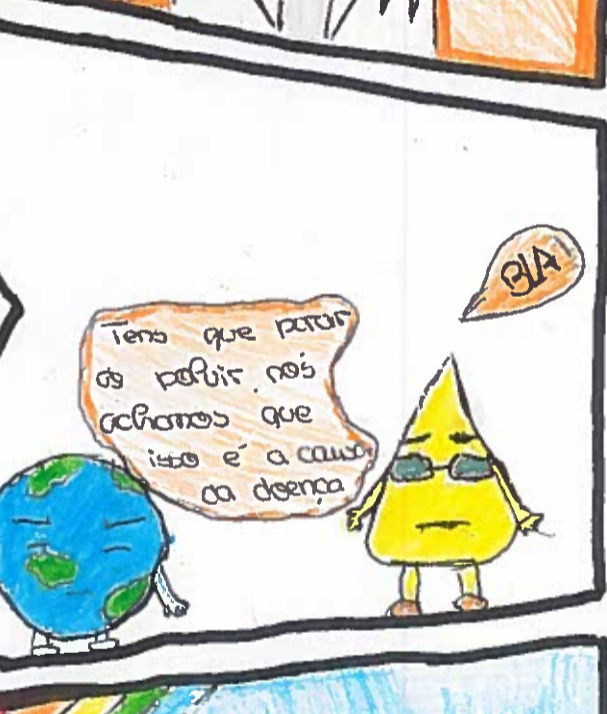 Tens que parar
de poluir, nós
achamos que
isso é a causa
da doença
BLA